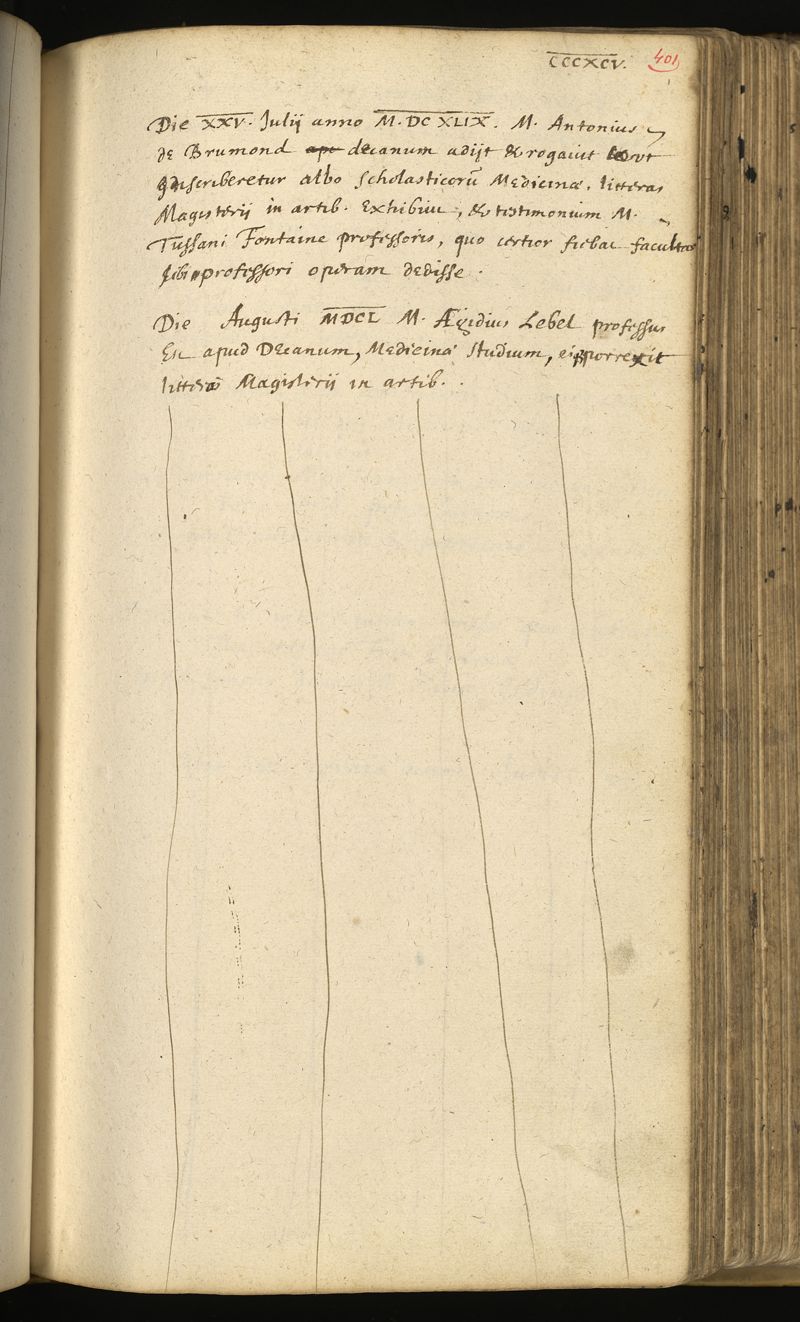 CCCXCV. 401
Die XXV. Julij anno M.DC XLIX. M. Antonius
de Brumond apt decanum adijt & rogavit ut
adscriberetur albo scholasticorū Medicinæ, litteras
Magisterij in artib. Exhibuit, & testimonium M.
Tussani Fontaine professoris, quo certior fiebat facultas
sibi professori operam dedisse.
Die Augusti MDCL M. Ægidius Lebel professus
Est apud Decanum, Medicinæ studium, et porrexit
litteras Magisterij in artib.